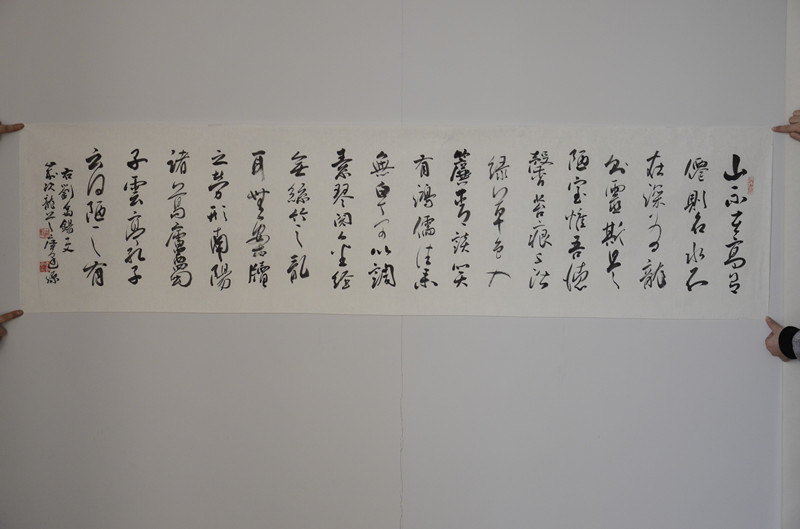 山不在高有
僊則名水不
在深有龍
則靈斯是
陋室惟吾德
馨苔痕上階
緑草色入
簾青談笑
有鴻儒往來
無白丁可以調
素琴閱金經
無絲竹之亂
耳無案牘
之勞形南陽
諸葛廬西蜀
子雲亭孔子
云何陋之有
右劉禹錫文
歲次龍